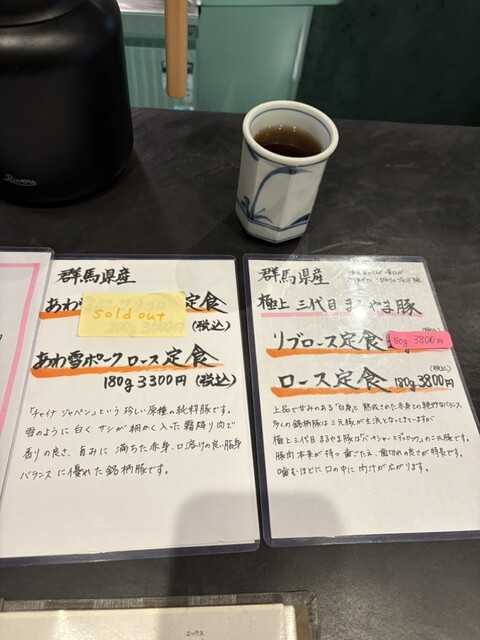 Rivers
群馬県産
あわ
定食
sold out
(税込)
あわ雪ポーク ロース定食
180g 3300円 (税込)
「チャイナ ジャパン」という珍しい原種の純粋豚です。
雪のように白く サシが細かく入った霜降り肉で
香りの良さ、旨みに満ちた赤身、口溶けの良い脂身
バランスに優れた銘柄豚です。
群馬県産
極上 三代目 まるやま豚
リブロース定食
180g 3800円
(税込)
ロース定食 180g 3800円
上品で甘みのある「白身」と熟成された赤身との絶妙なバランス
多くの銘柄豚は三元豚が主流となっていますが
極上三代目まるやま豚は
の二元豚です。
豚肉本来が持つ歯ごたえ、歯切れの良さが特長です。
噛むほどに口の中に肉汁が広がります。